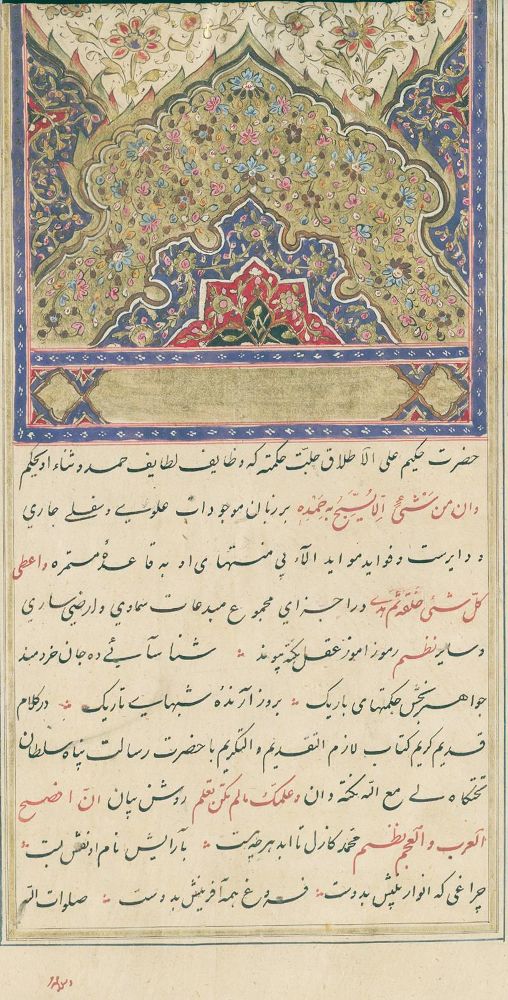 حضرت حکیم علی الاطلاق جلّت حکمته که وظایف لطایف حمد و ثناء او بحکم
وان من شیئ الا یُسبّح بحمده بر زبان موجودات علوی و سفلی جاری
و دایرست و فواید مواید الآء بی منتهای او به قاعدهٔ مستمره واعطی
کل شیئ خلقه ثم هدی در اجزای مجموع مبدعات سماوی و ارضی ساری
و سایر نظم رموز آموز عقل نکته پیوند شناسائی ده جان خردمند
جواهر بخش حکمتهای باریک بروز آرندهٔ شبهای تاریک در کلام
قدیم کریم کتاب لازم التقدیم والتکریم با حضرت رسالت پناه سلطان
تختکاه لی مع الله نکته دان وعلمک مالم تکن تعلم روشن بیان انا افصح
العرب والعجم نظم محمد کازل تا ابد هرچه هست بآرایش نام او نقش بست
چراغی که انوار بینش بدوست فروغ همه آفرینش بدوست صلوات الله